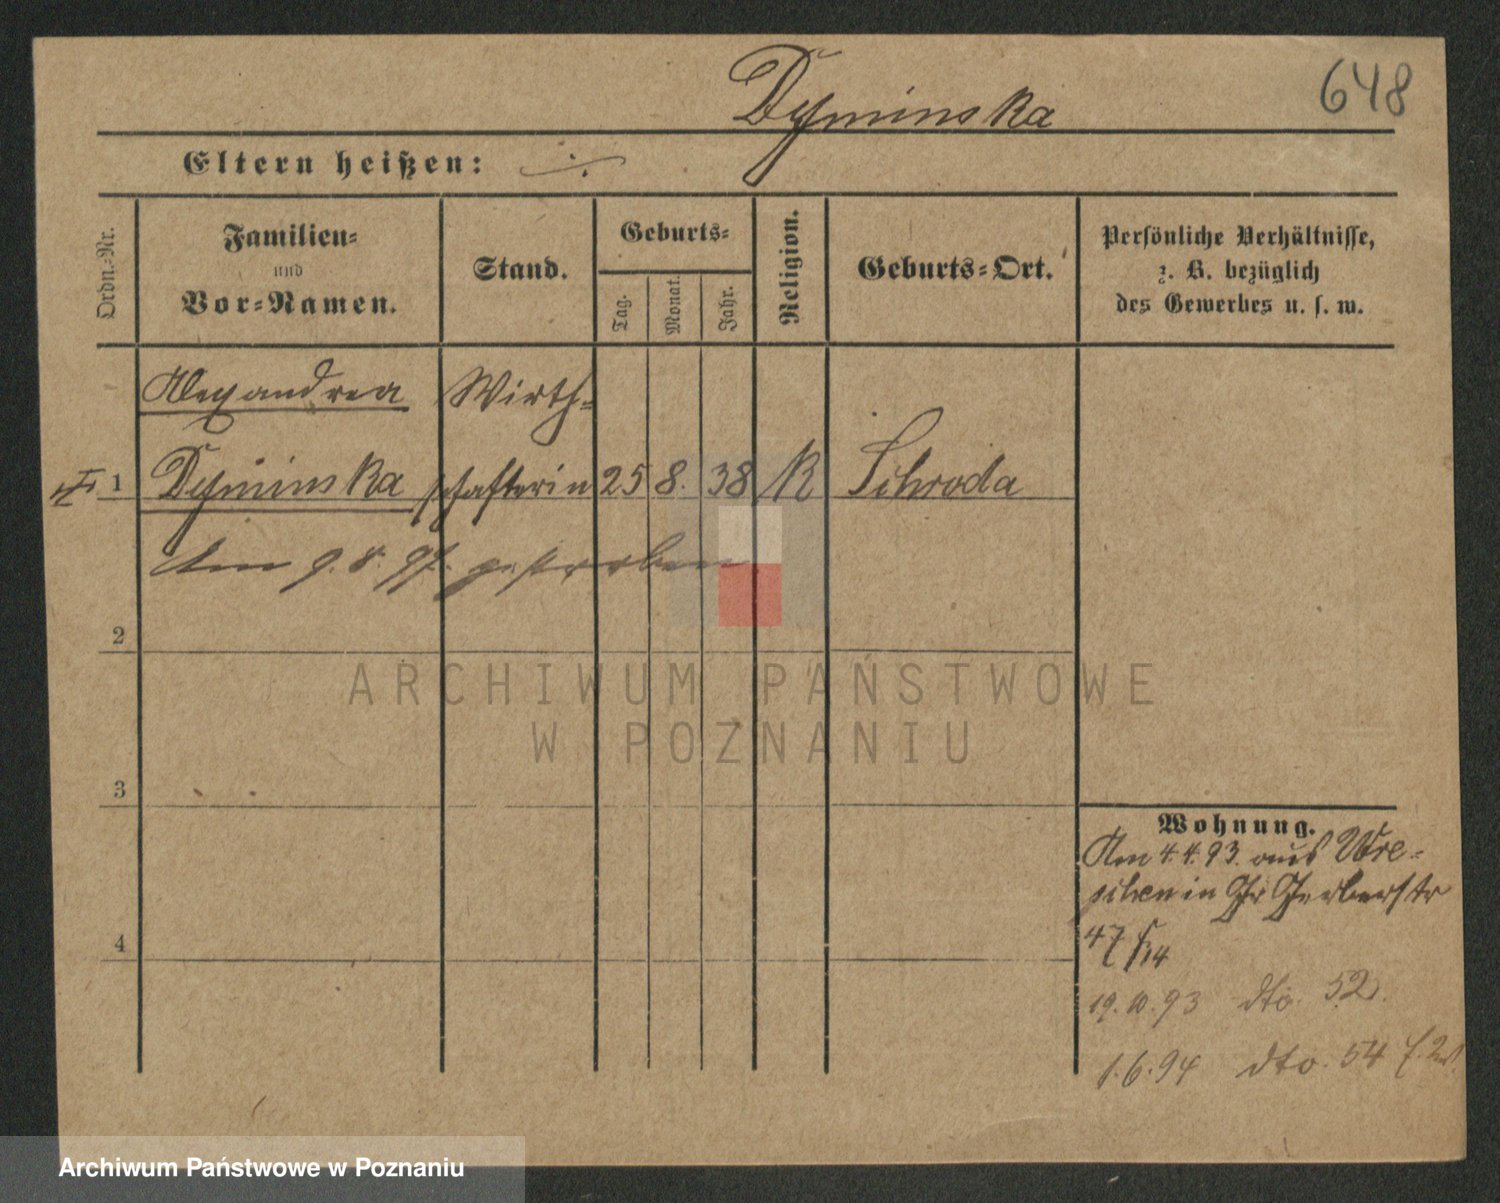 Dyminska
648
Eltern heißen: ./.
Ordn.-Nr.
Familien-
und
Vor-Namen.
Stand.
Geburts-
Tag.
Monat.
Jahr.
Religion.
Geburts-Ort.
Persönliche Verhältnisse,
z. B. bezüglich
des Gewerbes u. s. w.
Alexandrea Wirth-
1 Dyminska schafterin 25 8. 38 K Schroda
Am 9. 8. 97. gestorben
2
3
4
Wohnung.
Am 4.4.93. aus Wre-
schen in Gr Gerberstr
47
19.10.93 dto. 52.
1.6.94 dto. 54
ARCHIWUM PAŃSTWOWE
W POZNANIU
Archiwum Państwowe w Poznaniu